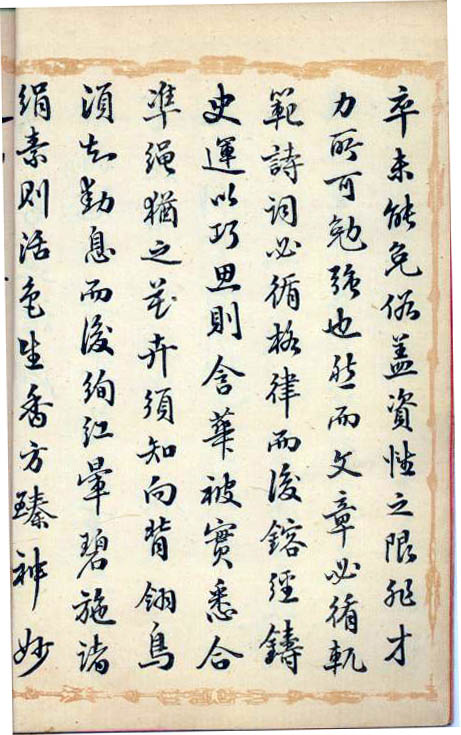 卒未能免俗蓋資性之限非才
力所可勉强也然而文章必循軌
範詩词必循格律而後鎔經鑄
史運以巧思則含華被實悉合
準繩猶之花卉須知向背翎鳥
須知動息而後絢红暈碧施诸
絹素則活色生香方臻神妙